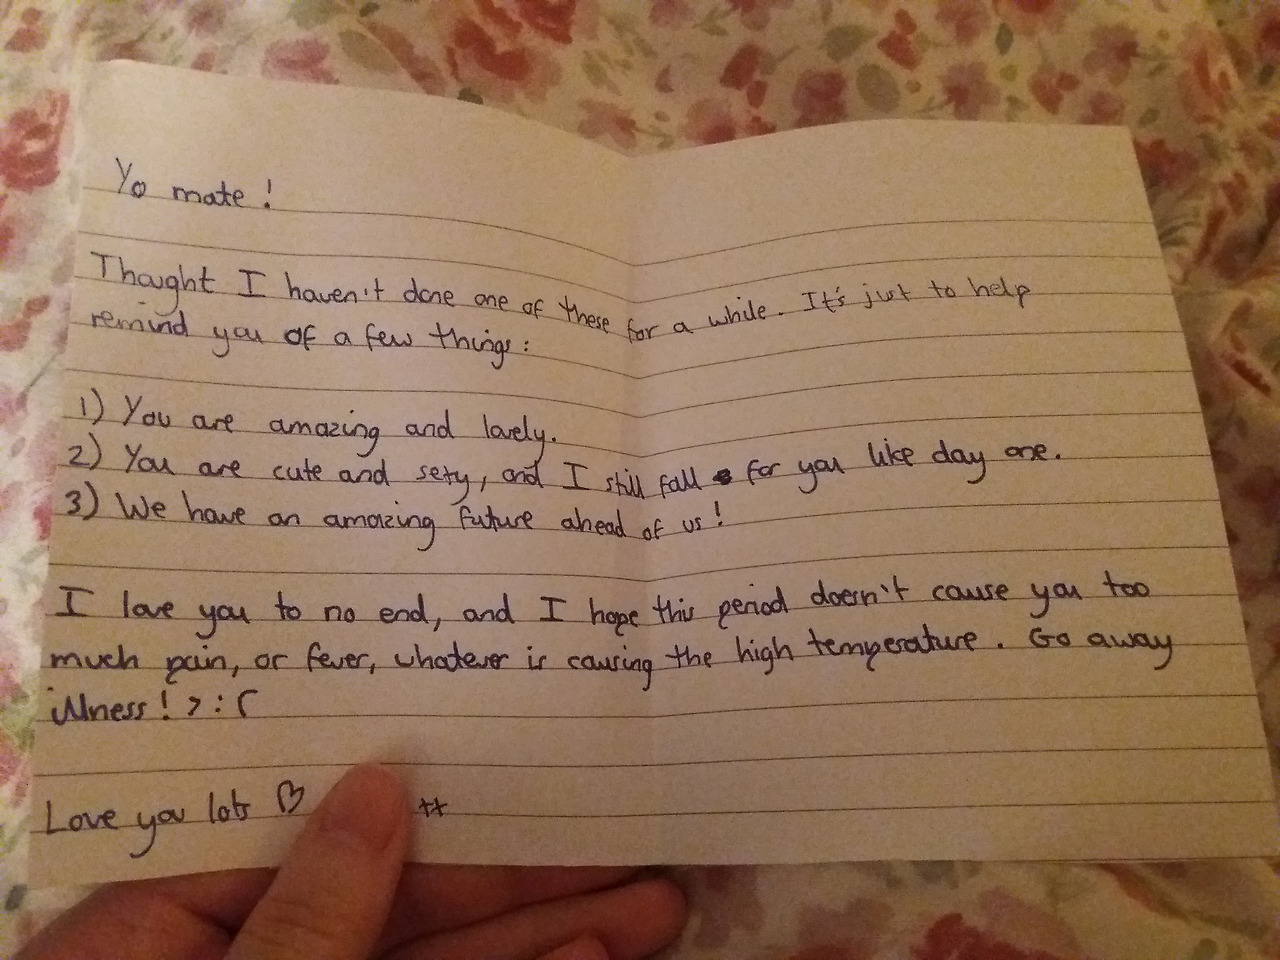 Yo mate!
Thought I haven't done one of these for a while. It's just to help
remind you of a few things:
1) You are amazing and lovely.
2) You are cute and sexy, and I still fall for you like day one.
3) We have an amazing future ahead of us!
I love you to no end, and I hope this period doesn't cause you too
much pain, or fever, whatever is causing the high temperature. Go away
illness! >:(
Love you lots ♡ xx